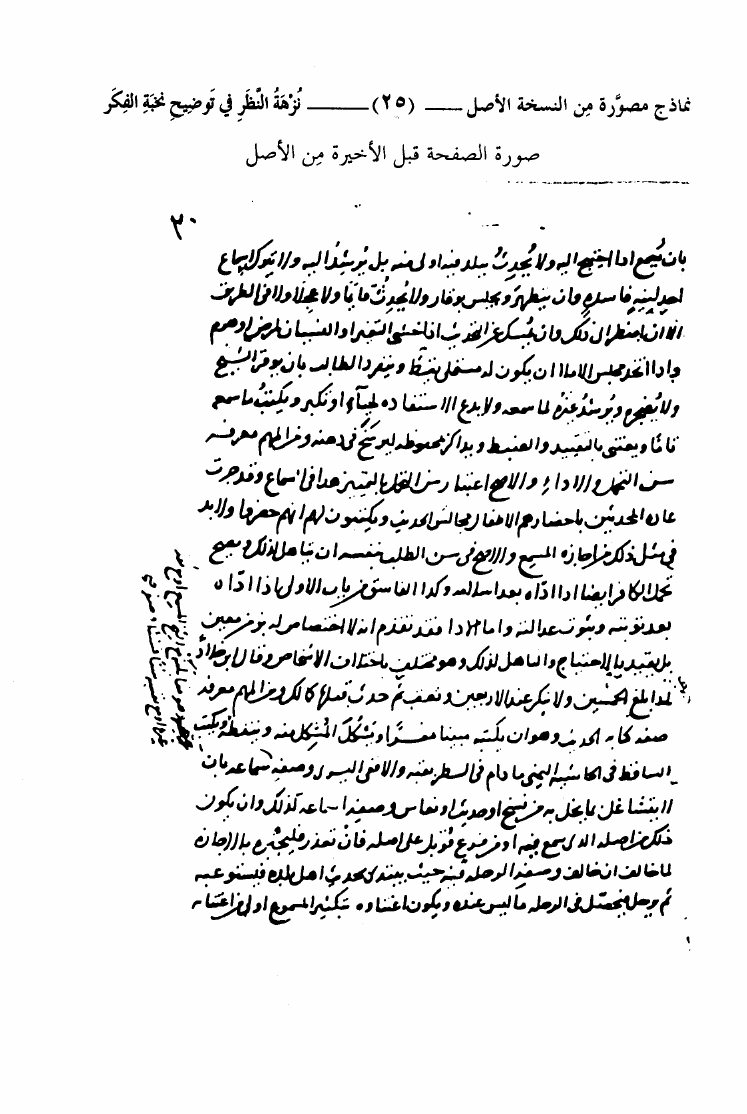 نماذج مصوَّرة مِن النسخة الأصل ــــ (٢٥) ــــــ نُزْهَةُ النَّظَرِ في تَوضِيحِ نخبَةِ الفِكَر
صورة الصفحة قبل الأخيرة مِن الأصل
٣٠
بان يُسمع اذا احتيج اليه ولا يُحدِث ببلد فيه اولى منه بل يُرشدُ اليه ولا يترك اسماع
احد لنيةٍ فاسدةٍ وان يتطهر ويجلس بوقار ولا يُحدِث قايمًا ولا عجلا ولا في الطريق
الا ان اضطر الى ذلك وان يُمسك عن التحديث اذا خشي التغير او النسيان لمرض او هرم
واذا اتخذ مجلس الاملا ان يكون له مستملي يقظ وينفرد الطالب بان يوقر الشيخ
ولا يُضجره ويُرشدُ غيرهُ لما سمعه ولا يدع الاستفاده لحيآءٍ او تكبر ويكتبُ ما سمعه
تامًا ويعتني بالتقييد والضبط ويذاكر بمحفوظه ليرسخ في ذهنه ومن المهم معرفه
سن التحمل والاداءِ والاصح اعتبار سن التحمل بالتمييز هذا في السماع وقد جرت
عاده المحدثين باحضارهم الاطفال مجالس الحديث ويكتبون لهم انهم حضروا ولا بد
في مثل ذلك من اجازه المسمع والاصح في سن الطلب بنفسه ان يتاهل لذلك ويصح
تحمل الكافر ايضا اذا ادّاه بعد اسلامه وكذا الفاسق من باب الاولى اذا ادّاه
بعد توبته وثبوت عدالته واما الادا فقد تقدم انه لا اختصاص له بزمن معين
بل يقيد بالاحتياج والتاهل لذلك وهو مختلف باختلاف الاشخاص وقال ابن خلادٍ
اذا بلغ الخمسين ولا ينكر عند الاربعين وتعقب بمن حدث قبلها كمالك ومن المهم معرفه
صفه كتابه الحديث وهو ان يكتبه مبينا مفسرًا ويَشكُلَ المُشكِل منه وينقطهُ ويكتب
الساقط في الحاشيه اليمنى ما دام في السطر بقيه والا ففي اليسرى وصفه سماعه بان
لا يتشاغل بما يخل به من نسخ او حديث او نعاس وصفه اسماعه كذلك وان يكون
ذلك من اصله الذي سمع فيه او من فرع قوبل على اصله فان تعذر فليجبره بالاجازه
لما خالف ان خالف وصفه الرحله فيه حيث يبتدئ بحديث اهل بلده فيستوعبه
ثم يرحل فيحصّل في الرحله ما ليس عنده ويكون اعتناؤه بتكثير المسموع اولى من اعتنائه